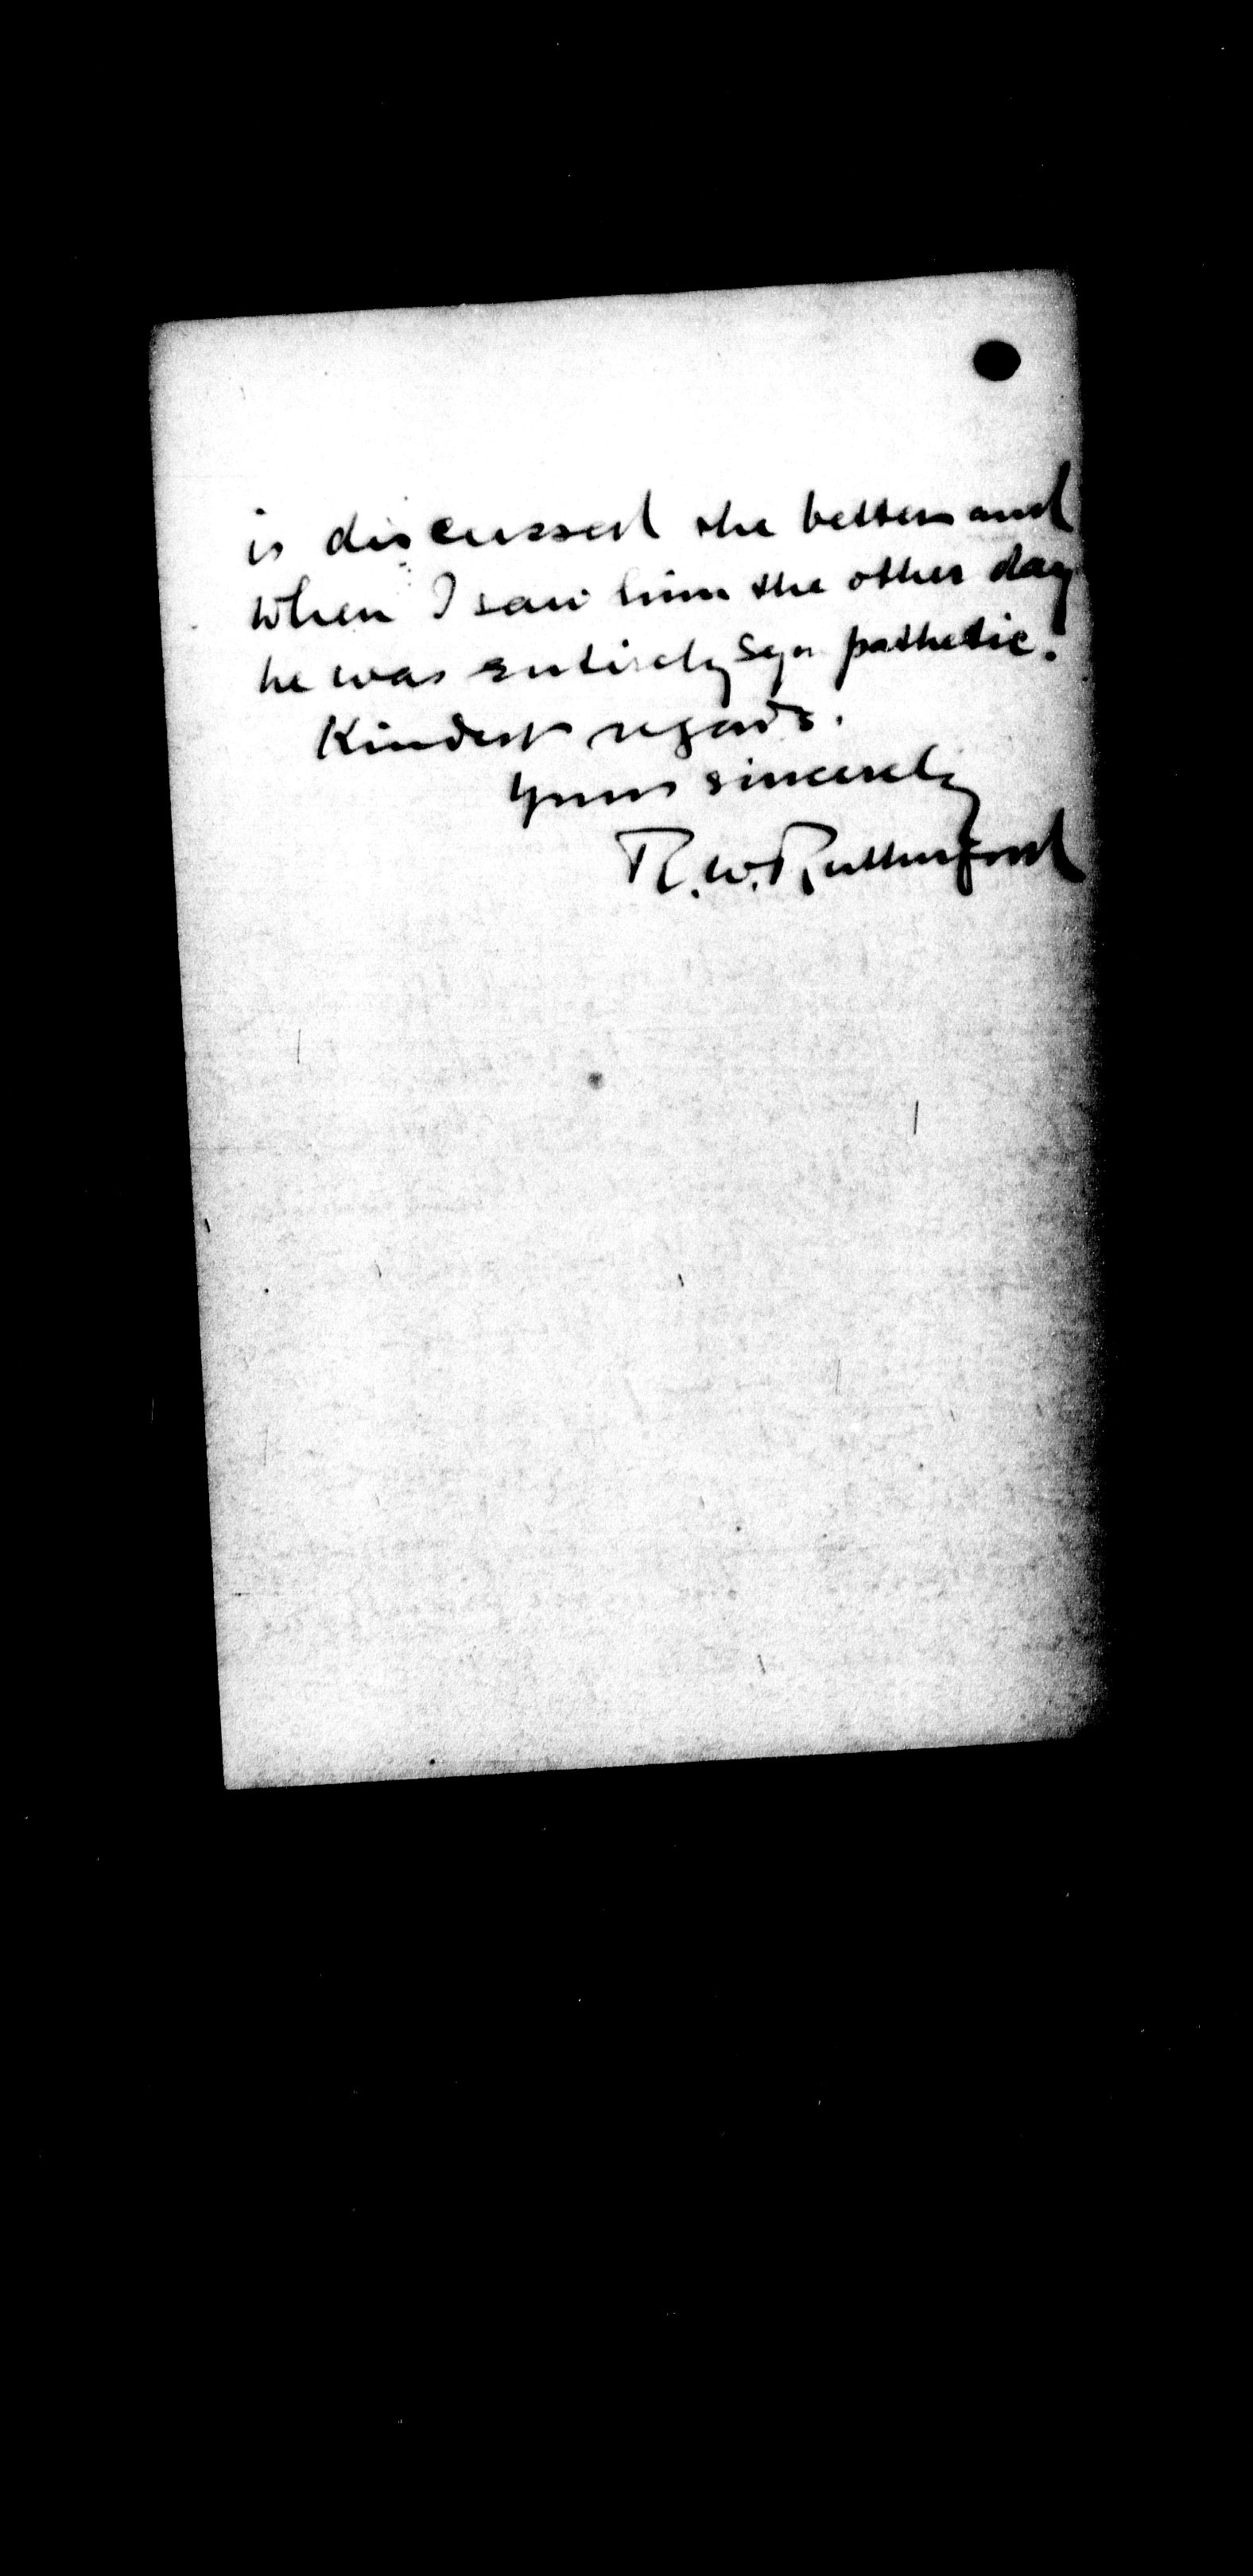 is discussed the better and
when I saw him the other day
he was entirely sympathetic.
Kindest regards.
Yours sincerely
R.W. Rutherford